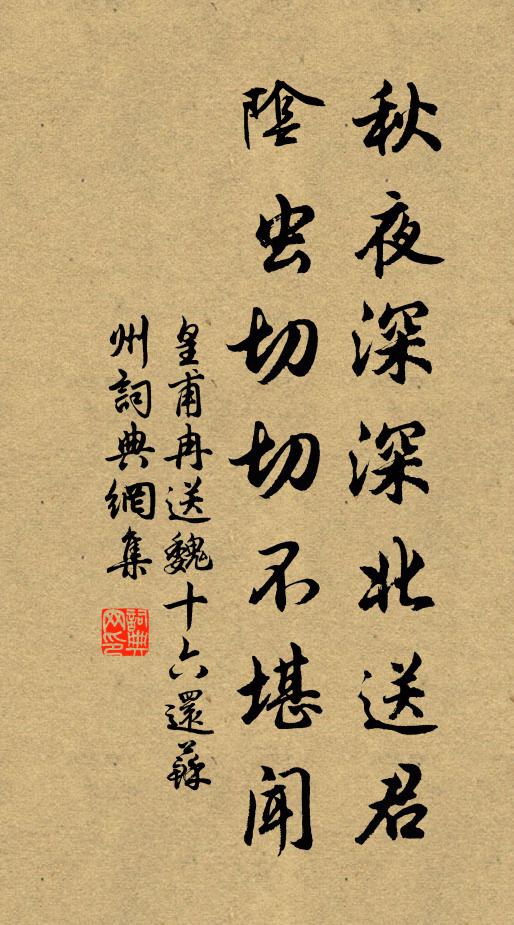 秋夜深深北送君
陰虫切切不堪聞
皇甫冉送魏十六還蘇
州詞典網集
詞典
网印